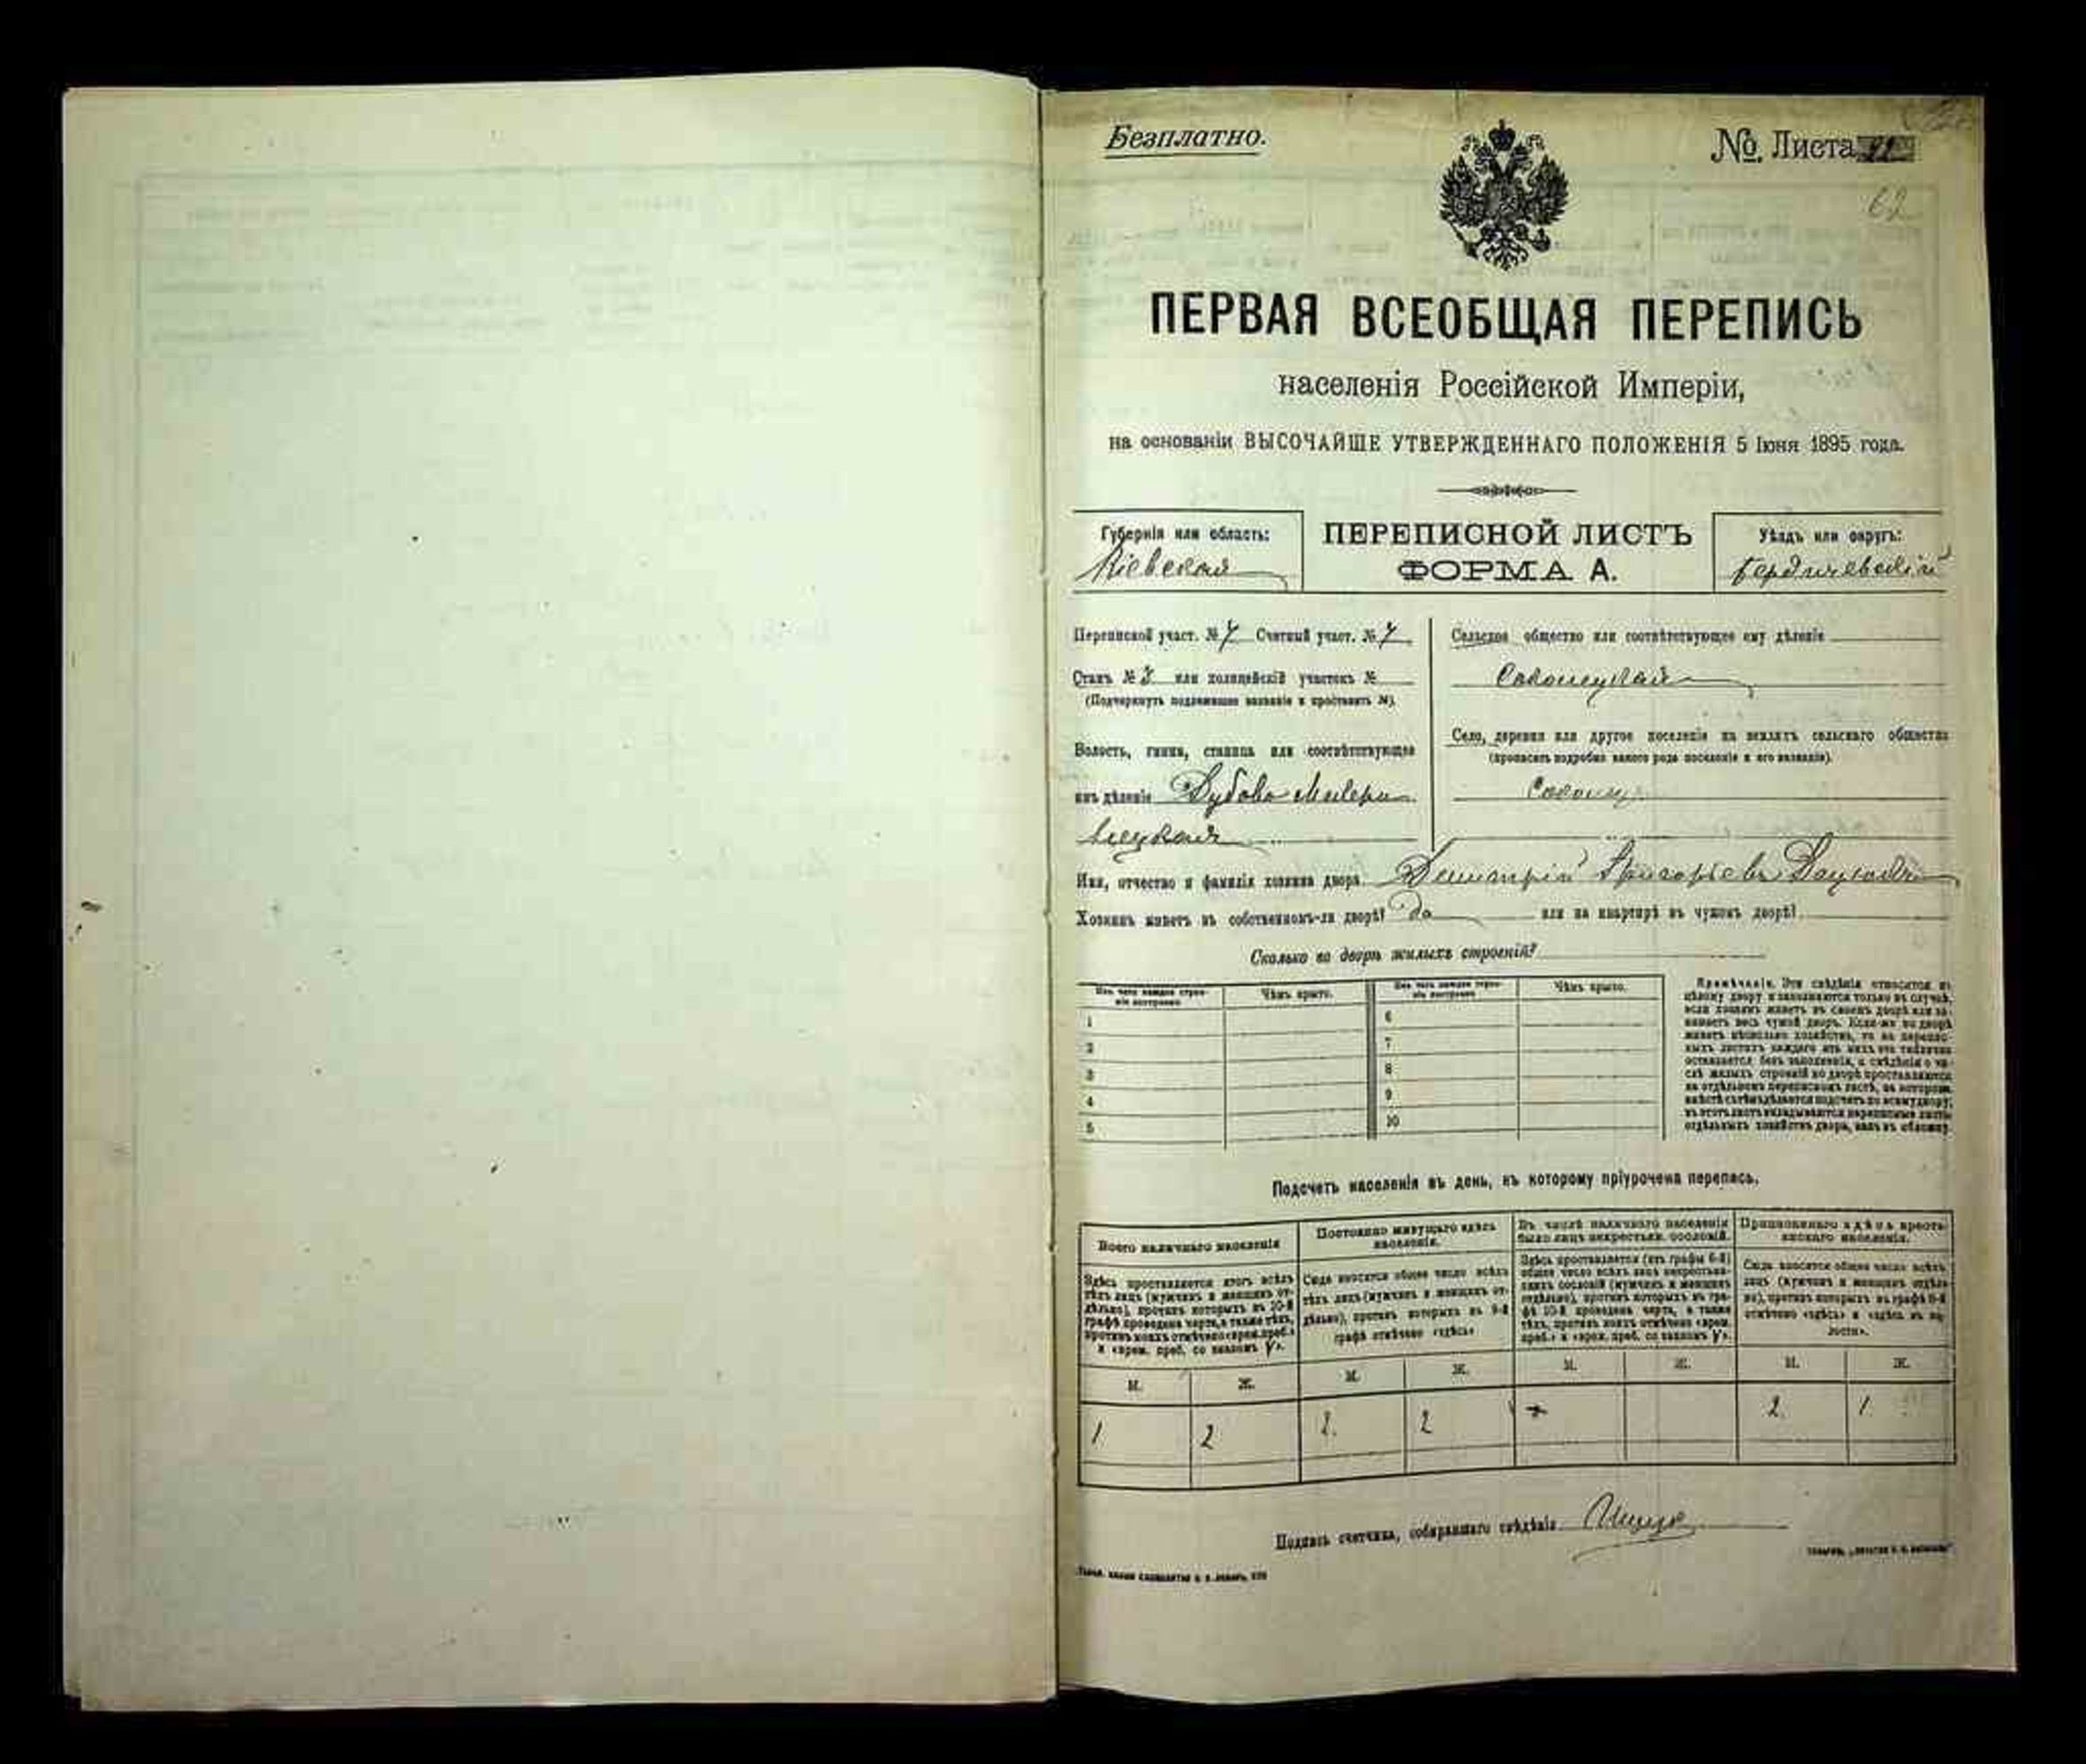 Безплатно.
№ Листа
62
ПЕРВАЯ ВСЕОБЩАЯ ПЕРЕПИСЬ
населенія Россійской Имперіи,
на основаніи ВЫСОЧАЙШЕ УТВЕРЖДЕННАГО ПОЛОЖЕНІЯ 5 Іюня 1895 года.
Губернія или область:
Кіевская
ПЕРЕПИСНОЙ ЛИСТЪ
ФОРМА А.
Уѣздъ или округъ:
Бердичевскій
Переписной участ. № 7 Счетный участ. № 7
Станъ № 3 или полицейскій участокъ №
(Подчеркнуть подлежащее названіе и проставить №).
Волость, гмина, станица или соотвѣтствующее
имъ дѣленіе
Сельское общество или соотвѣтствующее ему дѣленіе
Село, деревня или другое поселеніе на земляхъ сельскаго общества
(прописать подробно какого рода поселеніе и его названіе).
Имя, отчество и фамилія хозяина двора Димитрій Григорьевъ
Хозяинъ живетъ въ собственномъ-ли дворѣ? да или на квартирѣ въ чужомъ дворѣ?
Сколько во дворѣ жилыхъ строеній?
Изъ чего каждое строеніе построено
Чѣмъ крыто.
Изъ чего каждое строеніе построено
Чѣмъ крыто.
1
2
3
4
5
6
7
8
9
10
Примѣчаніе. Эти свѣдѣнія относятся къ
цѣлому двору и заполняются только въ случаѣ,
если хозяинъ живетъ въ своемъ дворѣ или за-
нимаетъ весь чужой дворъ. Если-же во дворѣ
живетъ нѣсколько хозяйствъ, то на перепис-
ныхъ листахъ каждаго изъ нихъ эта табличка
оставляется безъ заполненія, а свѣдѣнія о чи-
слѣ жилыхъ строеній во дворѣ проставляются
на отдѣльномъ переписномъ листѣ, на которомъ
вмѣстѣ съ тѣмъ дѣлается подсчетъ по всему двору;
въ этотъ листъ вкладываются переписные листы
отдѣльныхъ хозяйствъ двора, какъ въ обложку.
Подсчетъ населенія въ день, къ которому пріурочена перепись.
Всего наличнаго населенія
Здѣсь проставляется итогъ всѣхъ
тѣхъ лицъ (мужчинъ и женщинъ от-
дѣльно), противъ которыхъ въ 10-й
графѣ проведена черта, а также тѣхъ,
противъ коихъ отмѣчено «врем. преб.»
и «врем. преб. со знакомъ V».
Постоянно живущаго здѣсь
населенія.
Сюда вносится общее число всѣхъ
тѣхъ лицъ (мужчинъ и женщинъ от-
дѣльно), противъ которыхъ въ 9-й
графѣ отмѣчено «здѣсь»
Въ числѣ наличнаго населенія
было лицъ некрестьян. сословій.
Здѣсь проставляется (изъ графы 6-й)
общее число всѣхъ лицъ некрестьян-
скихъ сословій (мужчинъ и женщинъ
отдѣльно), противъ которыхъ въ гра-
фѣ 10-й проведена черта, а также
тѣхъ, противъ коихъ отмѣчено «врем.
преб.» и «врем. преб. со знакомъ V».
Приписаннаго здѣсь кресть-
янскаго населенія.
Сюда вносится общее число всѣхъ
лицъ (мужчинъ и женщинъ отдѣль-
но), противъ которыхъ въ графѣ 8-й
отмѣчено «здѣсь» и «здѣсь въ во-
лости».
М. Ж. М. Ж. М. Ж. М. Ж.
1 2 2. 2 2. 1
Подпись счетчика, собиравшаго свѣдѣнія